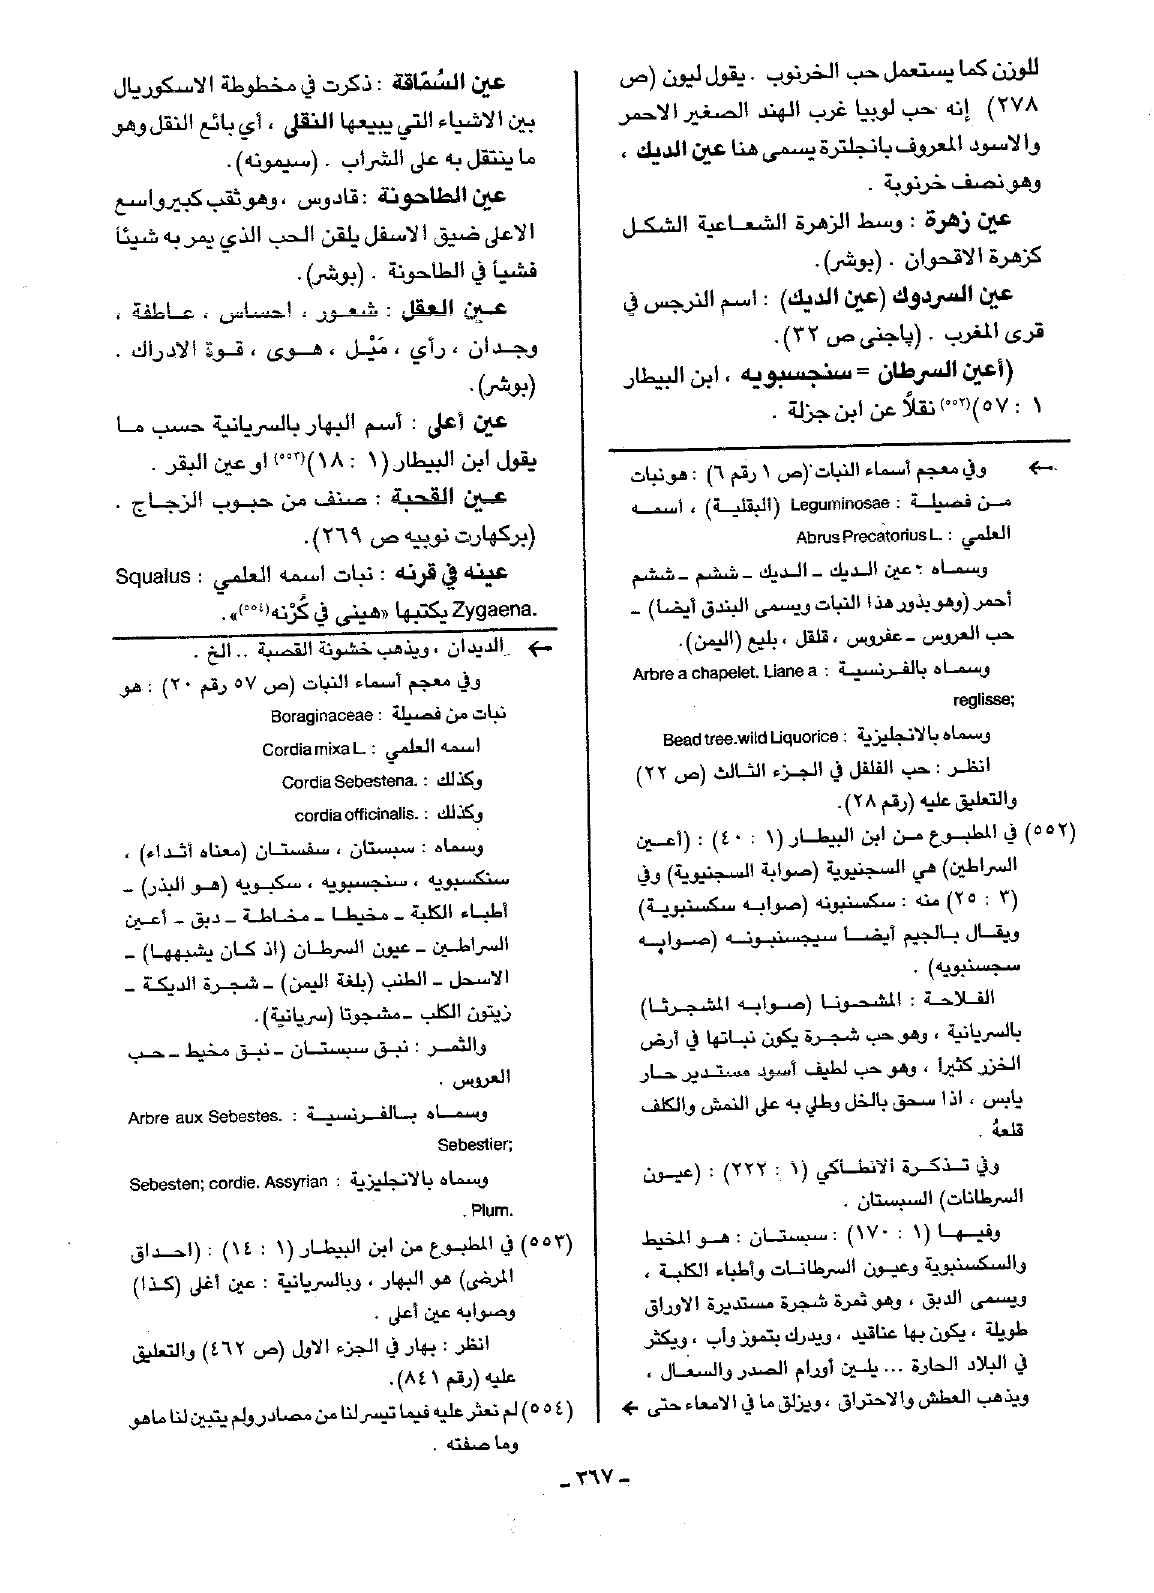 للوزن كما يستعمل حب الخرنوب . يقول ليون (ص
٢٧٨) إنه حب لوبيا غرب الهند الصغير الاحمر
والاسود المعروف بانجلترة يسمى هنا عين الديك ،
وهو نصف خرنوبة .
عين زهرة : وسط الزهرة الشعاعية الشكل
كزهرة الاقحوان . (بوشر).
عين السردوك (عين الديك) : اسم النرجس في
قرى المغرب . (پاجنى ص ٣٢).
(أعين السرطان = سنجسبويه ، ابن البيطار
١ : ٥٧)(٥٥٢) نقلاً عن ابن جزلة .
← وفي معجم أسماء النبات (ص ١ رقم ٦) : هو نبات
من فصيلة : Leguminosae (البقلية) ، اسمه
العلمي : Abrus Precatorius L.
وسماه : عين الديك ــ الديك ــ ششم ــ ششم
أحمر (وهو بذور هذا النبات ويسمى البندق أيضا) ــ
حب العروس ــ عفروس ، قلقل ، بليع (اليمن).
وسماه بالفرنسية : Arbre a chapelet. Liane a
reglisse;
وسماه بالانجليزية : Bead tree.wild Liquorice
انظر : حب الفلفل في الجزء الثالث (ص ٢٢)
والتعليق عليه (رقم ٢٨).
(٥٥٢) في المطبوع من ابن البيطار (١ : ٤٠) : (أعين
السراطين) هي السجنيوية (صوابة السجنيوية) وفي
(٣ : ٢٥) منه : سكسنبونه (صوابه سكسنبوية)
ويقال بالجيم أيضا سيجسنبونه (صوابه
سجسنبويه) .
الفلاحة : المشحونا (صوابه المشجرثا)
بالسريانية ، وهو حب شجرة يكون نباتها في أرض
الخزر كثيراً ، وهو حب لطيف أسود مستدير حار
يابس ، اذا سحق بالخل وطلي به على النمش والكلف
قلعهُ .
وفي تذكرة الانطاكي (١ : ٢٢٢) : (عيون
السرطانات) السبستان .
وفيها (١ : ١٧٠) : سبستان : هو المخيط
والسكسنبوية وعيون السرطانات وأطباء الكلبة ،
ويسمى الدبق ، وهو ثمرة شجرة مستديرة الاوراق
طويلة ، يكون بها عناقيد ، ويدرك بتموز وآب ، ويكثر
في البلاد الحارة ... يلين أورام الصدر والسعال ،
ويذهب العطش والاحتراق ، ويزلق ما في الامعاء حتى ←
عين السُمّاقة : ذكرت في مخطوطة الاسكوريال
بين الاشياء التي يبيعها النقلي ، أي بائع النقل وهو
ما ينتقل به على الشراب . (سيمونه).
عين الطاحونة : قادوس ، وهو ثقب كبير واسع
الاعلى ضيق الاسفل يلقن الحب الذي يمر به شيئاً
فشيأ في الطاحونة . (بوشر).
عين العقل : شعور ، احساس ، عاطفة ،
وجدان ، رأي ، مَيْل ، هوى ، قوة الادراك .
(بوشر).
عين أعلى : أسم البهار بالسريانية حسب ما
يقول ابن البيطار (١ : ١٨)(٥٥٣) او عين البقر .
عين القحبة : صنف من حبوب الزجاج .
(بركهارت نوبيه ص ٢٦٩).
عينه في قرنه : نبات اسمه العلمي : Squalus
Zygaena. يكتبها «هيني في كُرْنه(٥٥٤)».
← الديدان ، ويذهب خشونة القصبة .. الخ .
وفي معجم أسماء النبات (ص ٥٧ رقم ٢٠) : هو
نبات من فصيلة : Boraginaceae
اسمه العلمي : Cordia mixa L.
وكذلك : Cordia Sebestena.
وكذلك : cordia officinalis.
وسماه : سبستان ، سفستان (معناه أثداء) ،
سنكسبويه ، سنجسبويه ، سكبويه (هو البذر) ــ
أطباء الكلبة ــ مخيطا ــ مخاطة ــ دبق ــ أعين
السراطين ــ عيون السرطان (اذ كان يشبهها) ــ
الاسحل ــ الطنب (بلغة اليمن) ــ شجرة الديكة ــ
زيتون الكلب ــ مشجوتا (سريانية).
والثمر : نبق سبستان ــ نبق مخيط ــ حب
العروس .
وسماه بالفرنسية : Arbre aux Sebestes.
Sebestier;
وسماه بالانجليزية : Sebesten; cordie. Assyrian
Plum. .
(٥٥٣) في المطبوع من ابن البيطار (١ : ١٤) : (احداق
المرضى) هو البهار ، وبالسريانية : عين أغلى (كذا)
وصوابه عين أعلى .
انظر : بهار في الجزء الاول (ص ٤٦٢) والتعليق
عليه (رقم ٨٤١).
(٥٥٤) لم نعثر عليه فيما تيسر لنا من مصادر ولم يتبين لنا ما هو
وما صفته .
ــ ٣٦٧ ــ